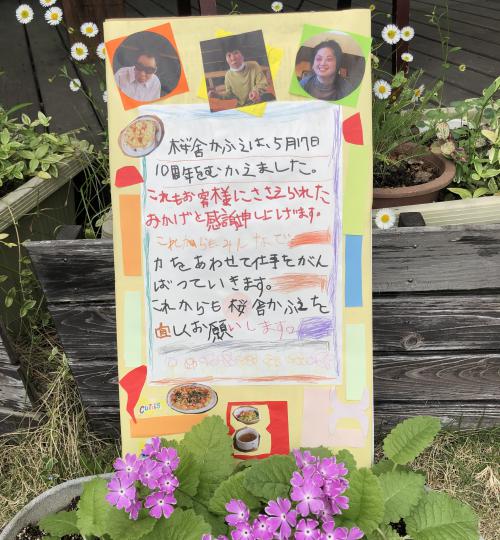 桜舎かふぇは、5月17日
10周年をむかえました。
これもお客様にささえられた
おかげと感謝申し上げます。
これからもみんなで
力をあわせて仕事をがん
ばっていきます。
これからも桜舎かふぇを
宜しくお願いします。